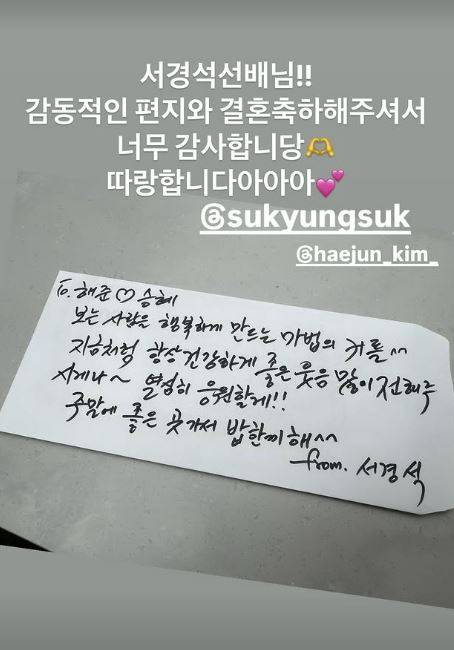 서경석선배님!!
감동적인 편지와 결혼축하해주셔서
너무 감사합니당🫶
따랑합니다아아아💕
@sukyungsuk
@haejun_kim_
To. 해준♡승혜
보는 사람은 행복하게 만드는 마법의 커플^^
지금처럼 항상 건강하게 좋은 웃음 많이 전해주
시게나~ 열렬히 응원할게!!
주말에 좋은 곳가서 밥한끼해^^
from. 서경석